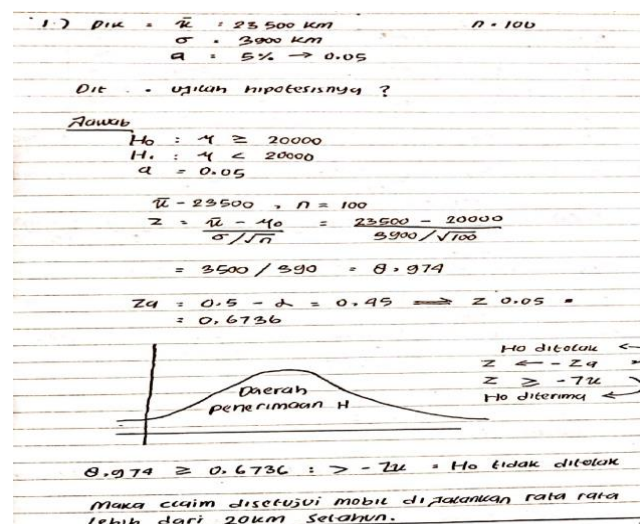 1.) Dik = x̄ : 23 500 km n = 100
σ = 3900 km
α = 5% → 0.05
Dit = ujilah hipotesisnya ?
Jawab
H₀ : μ ≥ 20000
H₁ : μ < 20000
α = 0.05
x̄ - 23500 , n = 100
z = x̄ - μ₀ / σ/√n = 23500 - 20000 / 3900/√100
= 3500 / 390 = 8,974
Zα = 0.5 - α = 0.45 ⟹ Z 0.05 =
= 0,6736
Ho ditolak ←
Z ← - Zα
Daerah
penerimaan H
Z ≥ - Zα
Ho diterima ←
8.974 ≥ 0.6736 : > - Zα = Ho tidak ditolak
maka claim disetujui mobil dijalankan rata rata
lebih dari 20km setahun.